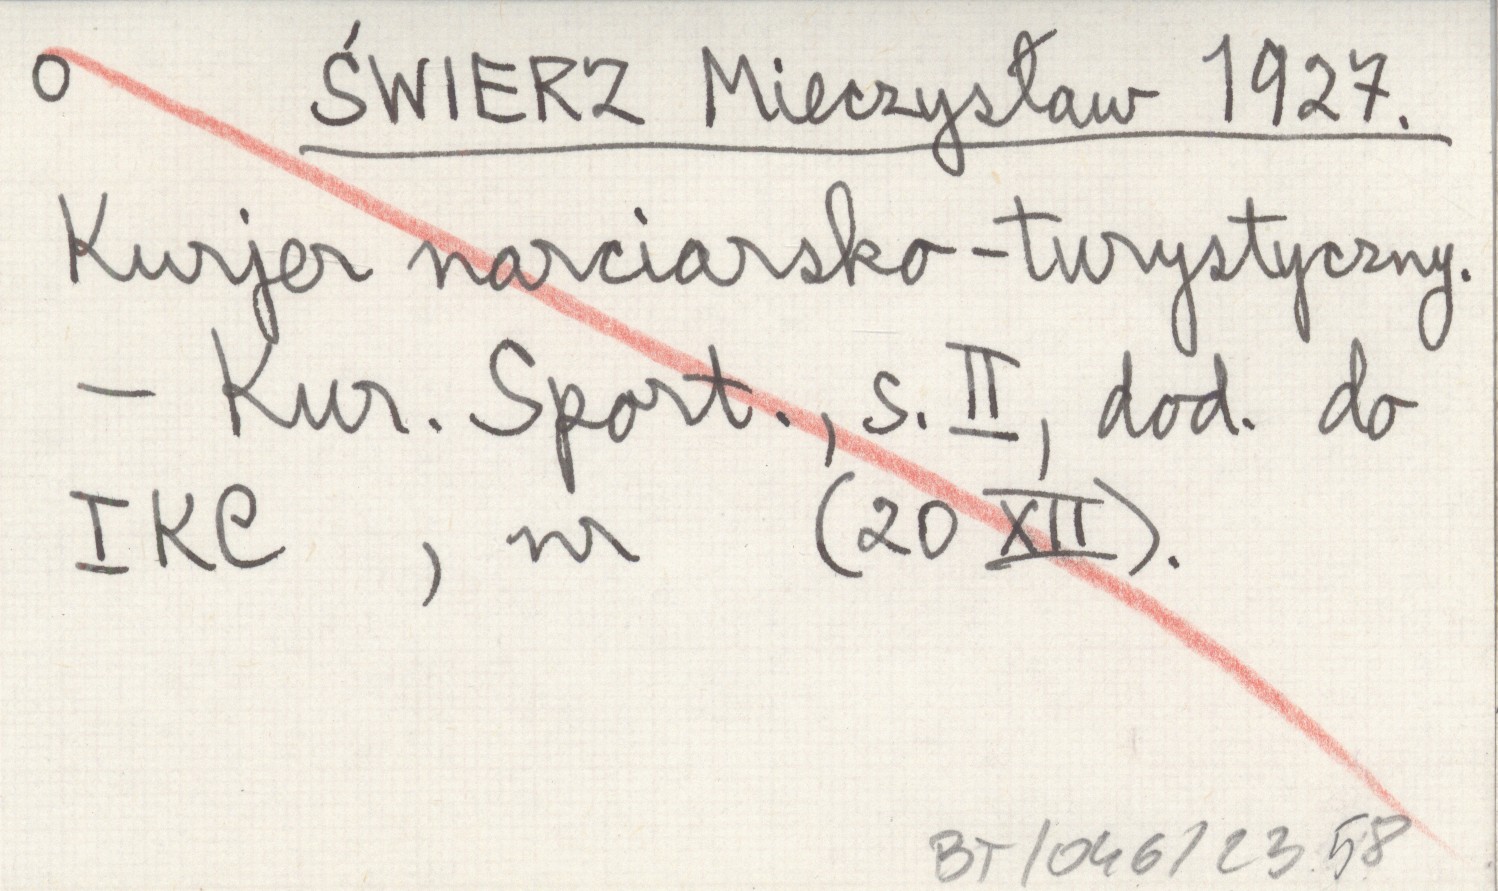 o ŚWIERZ Mieczysław 1927.
Kurjer narciarsko-turystyczny.
– Kur. Sport., s. II, dod. do
IKC , nr (20 XII).
BT/046/2358